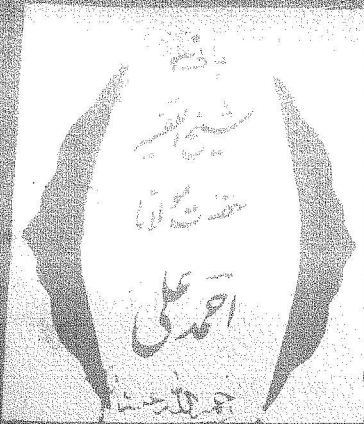 بانی
شیخ التفسیر
حضرت مولانا
احمد علی
رحمۃ اللہ علیہ